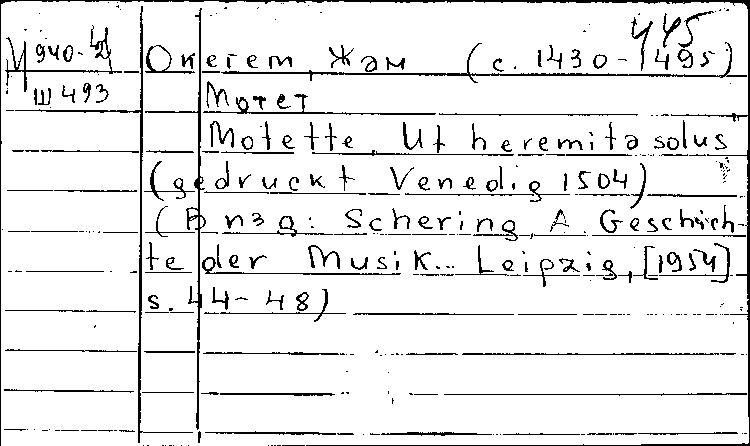 445
М 940-
Ш 493
Окегем, Жам (с. 1430-1495)
Мотет
Motette. Ut heremita solus
(gedruckt Venedig 1504)
(В изд: Schering, A. Geschich-
te der Musik... Leipzig, [1954]
s. 44-48)